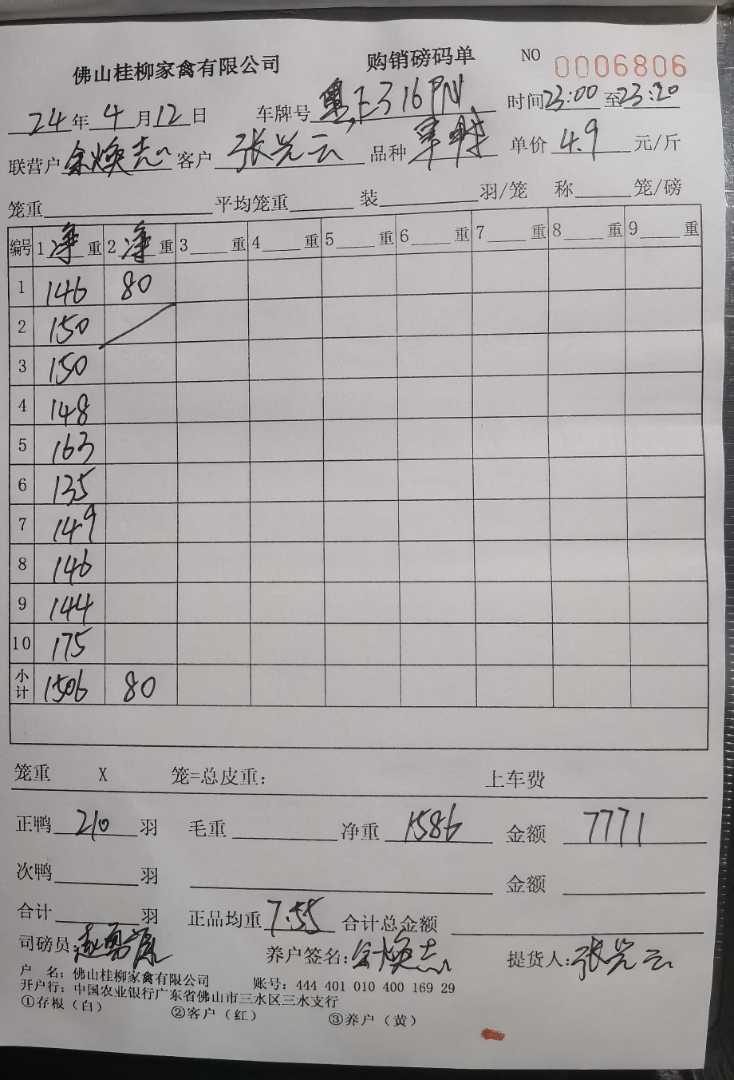 佛山桂柳家禽有限公司 购销磅码单 NO 0006806
24年4月12日 车牌号粤E316PN 时间23:00至23:20
联营户余焕志 客户张光云 品种 单价4.9元/斤
笼重 平均笼重 装 羽/笼 称 笼/磅
编号 1净重 2净重 3 重 4 重 5 重 6 重 7 重 8 重 9 重
1 146 80
2 150
3 150
4 148
5 163
6 135
7 149
8 146
9 144
10 175
小计 1506 80
笼重 X 笼=总皮重: 上车费
正鸭210羽 毛重 净重1586 金额7771
次鸭 羽 金额
合计 羽 正品均重7.55 合计总金额
司磅员: 养户签名:余焕志 提货人:张光云
户 名: 佛山桂柳家禽有限公司 账号: 444 401 010 400 169 29
开户行: 中国农业银行广东省佛山市三水区三水支行
①存根(白) ②客户(红) ③养户(黄)